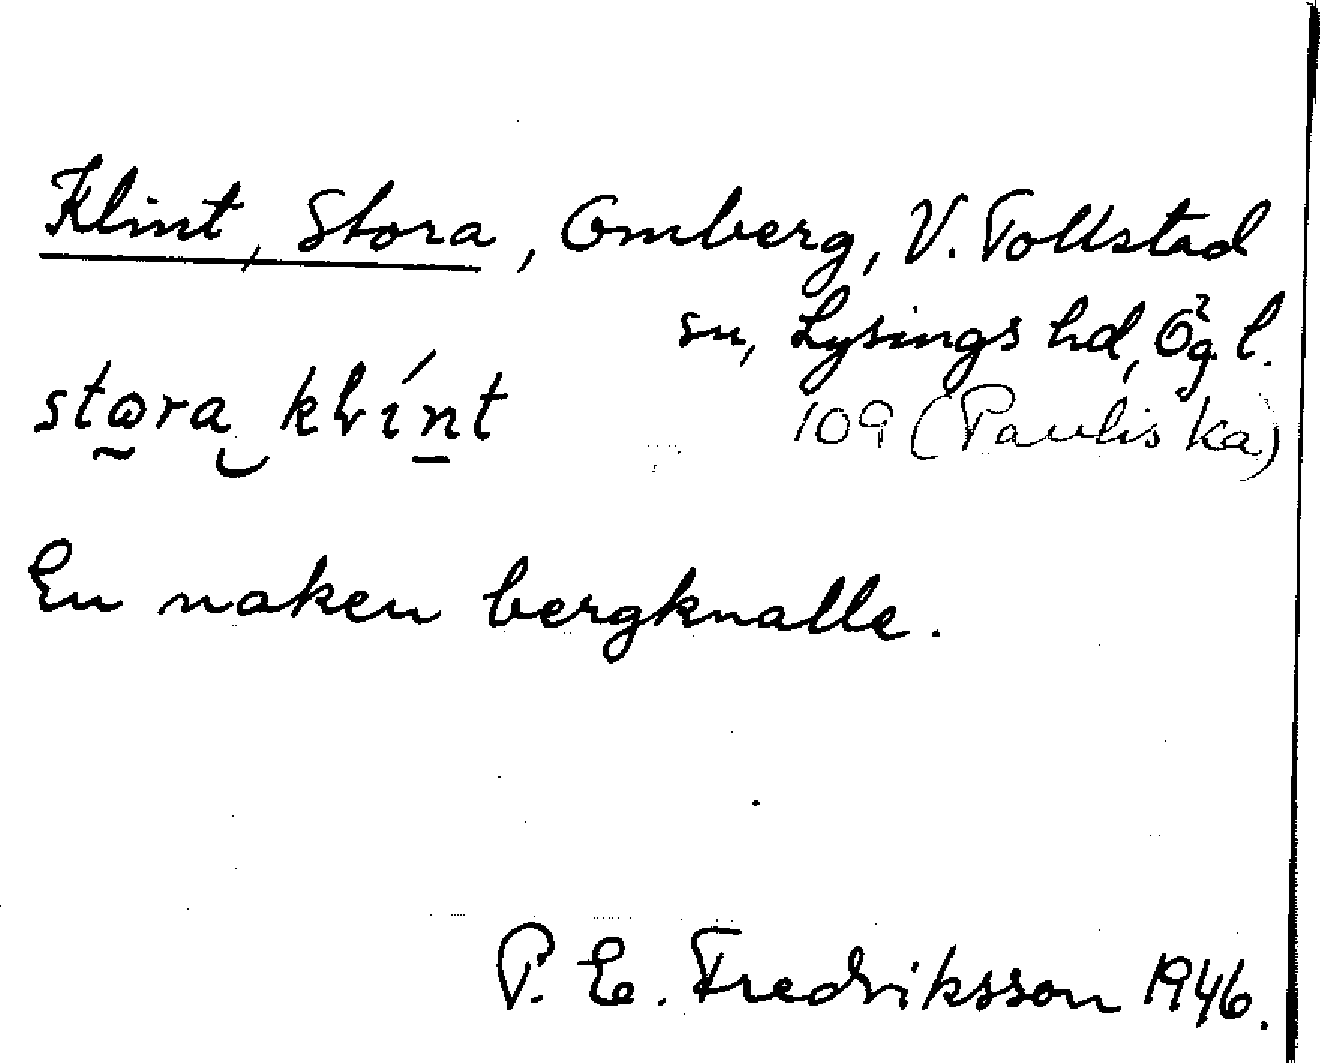 Klint, Stora, Omberg, V. Tollstad
sn, Lysings hd, Ög l.
stora klínt
109 (Pauliska)
En naken bergknalle.
P. E. Fredriksson 1946.